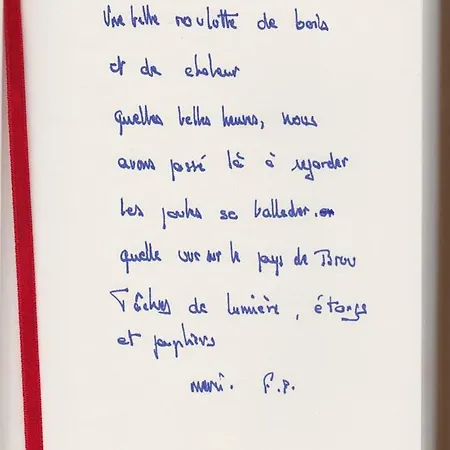 Une belle roulotte de bois
et de chaleur
quelles belles heures, nous
avons passé là à regarder
les poules se ballader.
quelle vue sur le pays de Bray
Tâches de lumière, étangs
et peupliers
merci. F.P.